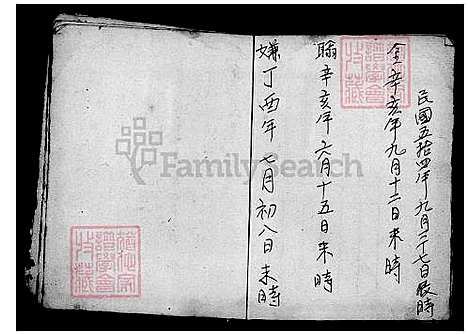 民國五拾四年九月二十七日辰時
全辛亥年九月十二日未時
瑞辛亥年六月十五日未時
嫌丁酉年七月初八日未時
FamilySearch